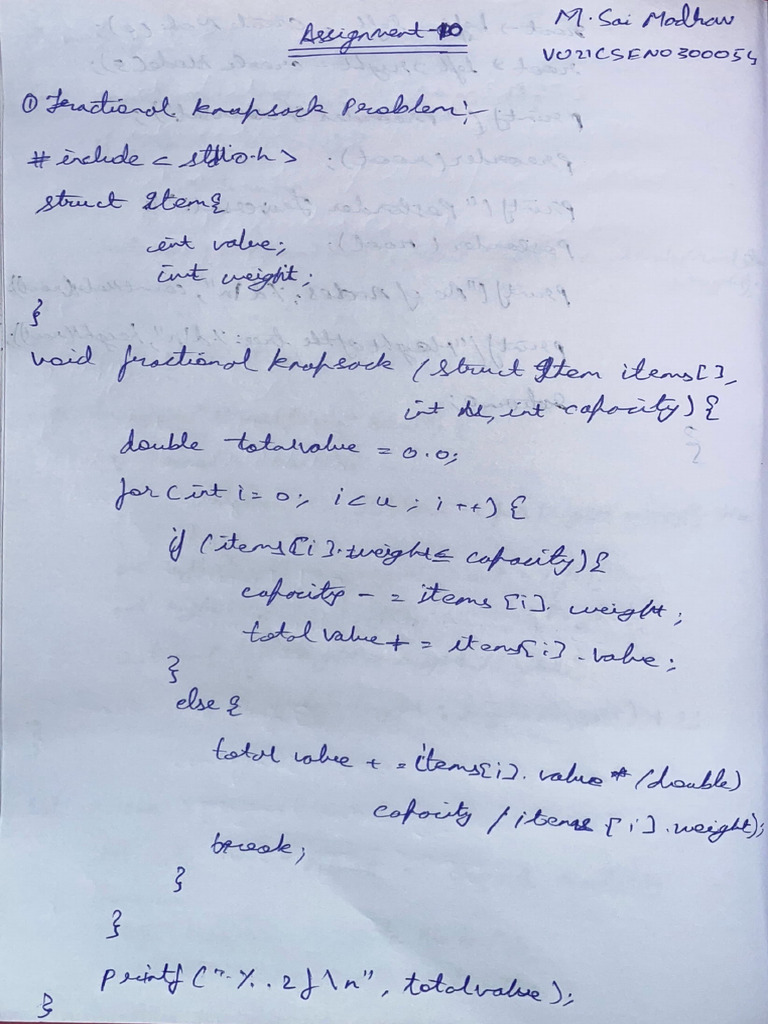 Assignment-10
M. Sai Madhav
VU21CSEN0300054
① Fractional knapsack Problem:-
# include < stdio.h >
struct Item{
int value;
int weight;
}
void fractional knapsack (struct Item items[],
int n, int capacity) {
double totalvalue = 0.0;
for (int i = 0; i < n ; i ++) {
if (items[i].weight ≤ capacity) {
capacity - = items [i]. weight;
total value + = items[i]. value;
}
else {
total value + = items[i]. value * (double)
capacity / items [i]. weight);
break;
}
}
printf ("%. 2f \n", totalvalue);
}